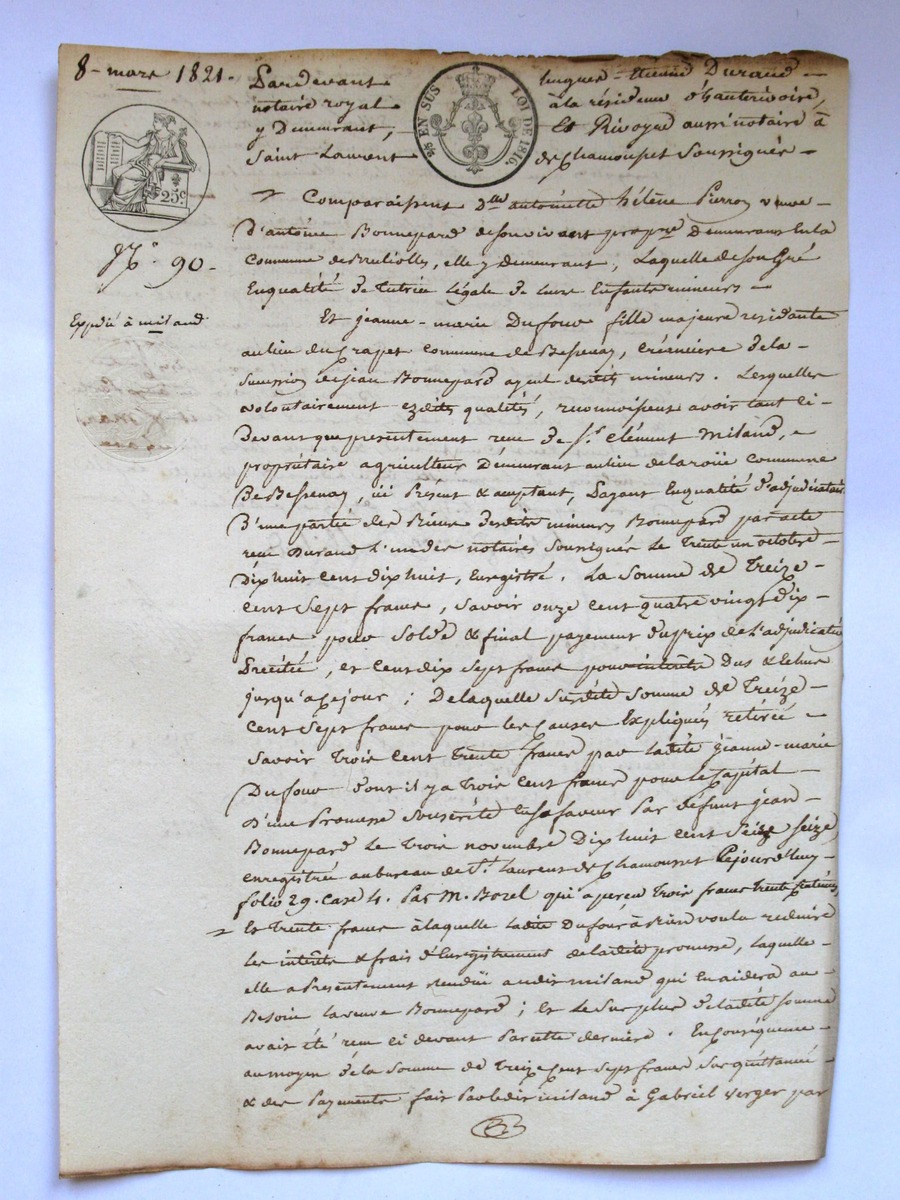 8 - mars 1821 -
Pardevant hugues - Etienne Durand -
notaire royal à la résidence d'hauterivoire
y Demeurant, Et Rivoyre aussi notaire à
Saint Laurent de Chamousset Soussignés -
25 EN SUS LOI DE 1816.
25c
N.° 90 -
Expédié à miland
Comparaissent D.lle antoinette hélène Pierron veuve
D'antoine Bonnepard de son vivant propre Demeurant En la
Commune de Bruliolles, elle y Demeurant, Laquelle de Son Gré
Enqualité de tutrice légale de leurs Enfants mineurs -
Et jeanne - marie Dufour fille majeure residante
au lieu du Crapet Commune de Bessenay, Créancière de la -
Succession de jean Bonnepard ayeul desdits mineurs. Lesquelles
volontairement ezdites qualités, reconnoissent avoir tant ci -
Devant que presentement reçu de S.r Clément Miland,
propriétaire agriculteur Demeurant au lieu de la roüe Commune
De Bessenay, ici Présent & acceptant, Payant Enqualité d'adjudicataire
D'une partie des Biens desdits mineurs Bonnepard par acte
reçu Durand l'un des notaires Soussignés le trente un octobre -
Dix huit cent dix huit, Enregistré. La Somme de Treize -
Cent Sept francs, Savoir onze cent quatre vingt dix
francs pour Solde & final payement du prix de l'adjudication
Précitée, et Cent dix Sept francs pour intérêts Dus & Echus
jusqu'à ce jour ; De laquelle Susdite Somme de Treize -
Cent Sept francs pour les Causes Expliquées retirée -
Savoir Trois Cent Trente francs par ladite jeanne - marie
Dufour dont il y a Trois Cent francs pour le Capital
D'une Promesse Souscrite En Sa faveur Par défunt jean -
Bonnepard le Trois novembre Dix huit cent Seize seize,
enregistrée au bureau de S.t Laurent de Chamousset Cejourd'huy -
folio 29. Case 4. Par M. Borel qui a perçu Trois francs trente centimes
Et Trente francs à laquelle ladite Dufour à bien voulu reduire
les intérêts & frais d'Enregistrement de ladite promesse, laquelle
elle a Presentement rendüe audit miland qui En aidera au -
Besoin la veuve Bonnepard ; Et le Surplus de ladite Somme
avait été reçu ci devant Par cette dernière. En Conséquence -
au moyen de la Somme de Treize Cent Sept francs Sus quittancée -
& des Payements fait Par ledit miland à Gabriel Verger par